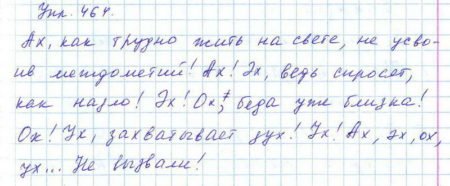 Упр. 464.
Ах, как трудно жить на свете, не усво-
ив междометий! Ах! Эх, ведь спросят,
как назло! Эх! Ох, беда уже близка!
Ох! Ух, захватывает дух! Ух! Ах, эх, ох,
ух... Не вызвали!